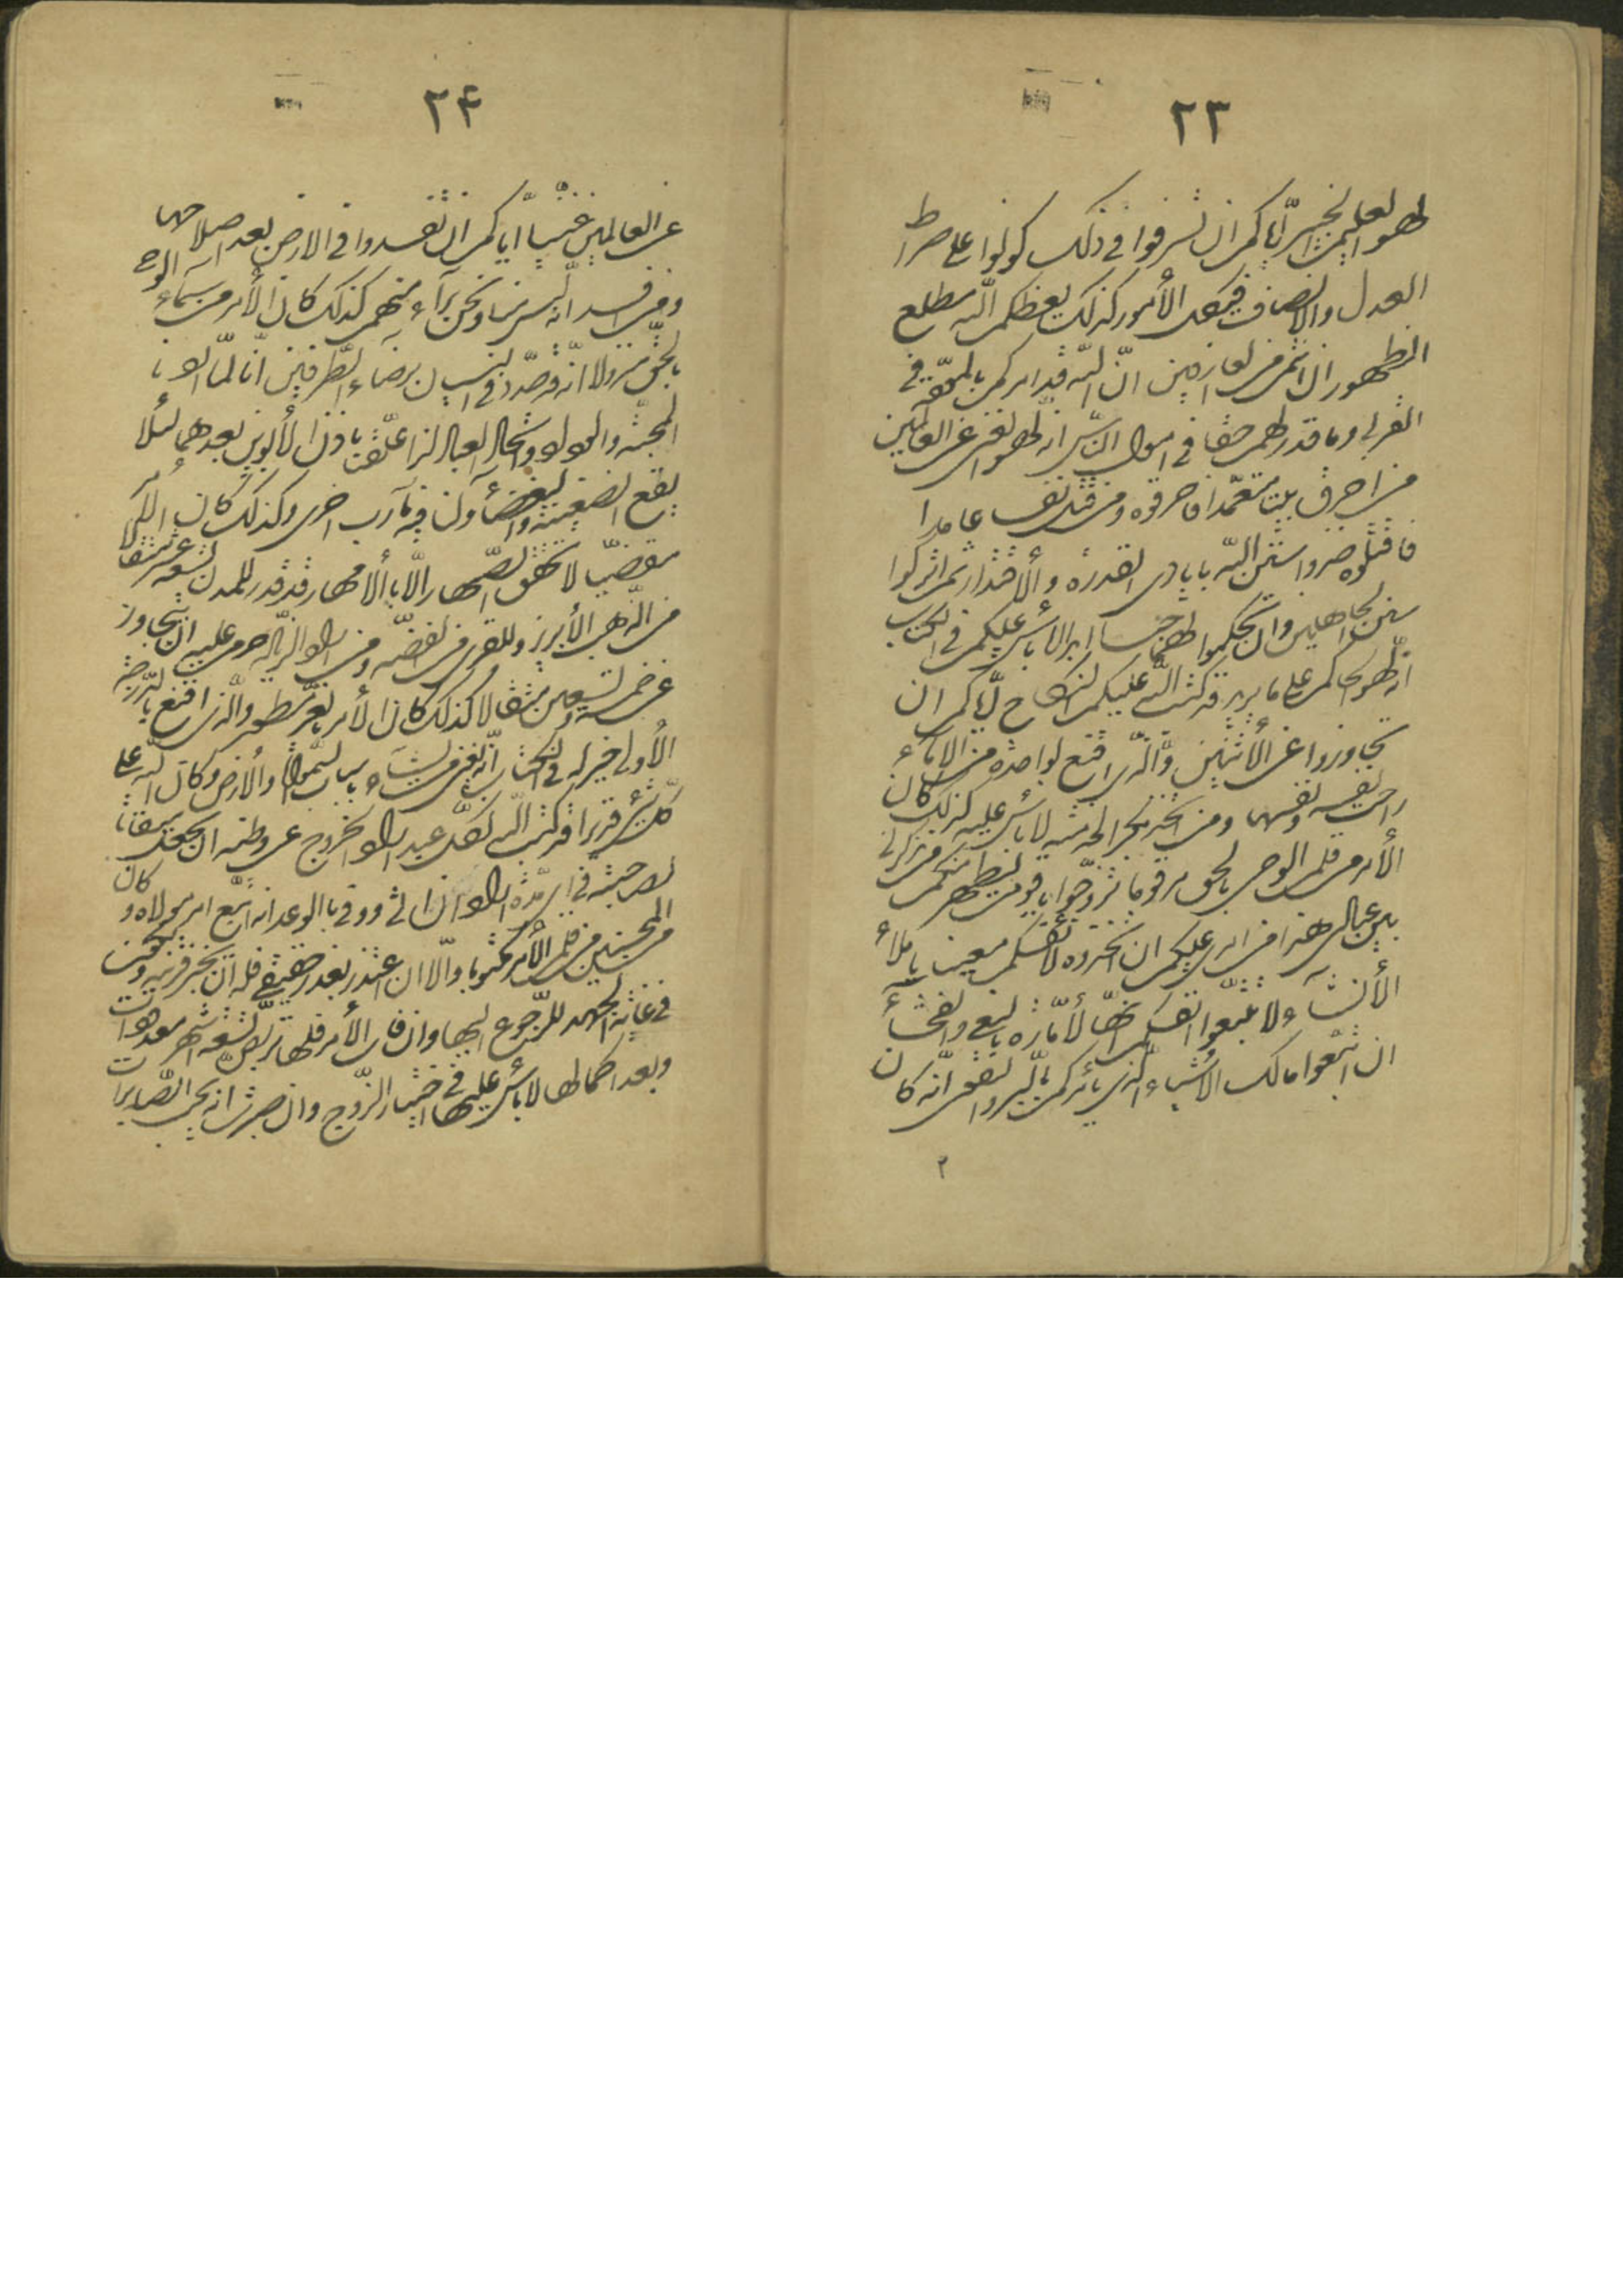 ٢٣
لهو العليم الخبير اياكم ان تسرفوا فى ذلك كونوا على صراط
العدل والانصاف فى كل الأمور كذلك يعظكم الله مطلع
الظهور ان انتم من العارفين انّ الله قد امركم بالمودّة فى
القربى وما قدر لهم حقا فى اموال النّاس انه لهو الغنى عن العالمين
من احرق بيتا متعمّدا فاحرقوه ومن قتل نفسا عامدا
فاقتلوه خذوا سنن الله بايادى القدرة والأقتدار ثم اتركوا
سنن الجاهلين وان تحكموا لهما حبسا ابديا لا بأس عليكم فى الكتاب
انه لهو الحاكم على ما يريد قد كتب الله عليكم النكاح ايّاكم ان
تجاوزوا عن الأثنتين والّذى اقتنع بواحدة من الاماء
استراحت نفسه ونفسها ومن اتخذ بكرا لخدمته لا بأس عليه كذلك كان
الأمر من قلم الوحى بالحق مرقوما تزوّجوا يا قوم ليظهر منكم من يذكرنى
بين عبادى هذا من امرى عليكم ان اتخذوه لأنفسكم معينا يا ملأ
الأنشآء ولا تتّبعوا انفسكم انّها لأمّارة بالبغى والفحشآء
ان اتّبعوا مالك الاشياء الّذى يأمركم بالبرّ والتقوى انه كان
٢
٢۴
عن العالمين غنيّا ايّاكم ان تفسدوا فى الارض بعد اصلاحها
ومن افسد انّه ليس منا ونحن برآء منهم كذلك كان الأمر من سمآء الوحى
بالحقّ منزولا انّه قد حدّد فى البيان برضاء الطّرفين انّا لمّا اردنا
المحبّة والوداد واتّحاد العباد لذا علّقناه بأذن الأبوين بعدهما لئلّا
يقع الضغينة والبغضآء ولنا فيه مآرب اخرى وكذلك كان الأمر
مقضيّا لا يحقّق الصّهار الّا بالأمهار قد قدّر للمدن تسعة عشر مثقالا
من الذّهب الأبريز وللقرى من الفضّة ومن اراد الزّيادة حرّم عليه ان يتجاوز
عن خمسة وتسعين مثقالا كذلك كان الأمر بالعزّ مسطورا والّذى اقتنع بالدّرجة
الأولى خير له فى الكتاب انّه يغنى من يشآء باسباب السّموات والأرض وكان الله على
كلّ شىء قديرا قد كتب الله لكلّ عبد اراد الخروج عن وطنه ان يجعل ميقاتا
لصاحبته فى ايّة مدّة اراد ان اتى ووفى بالوعد انّه اتّبع امر مولاه وكان
من المحسنين من قلم الأمر مكتوبا والّا ان اعتذر بعذر حقيقى فله ان يخبر قرينته ويكون
فى غاية الجهد للرّجوع اليها وان فات الأمران فلها تربّص تسعة اشهر معدودات
وبعد اكمالها لا بأس عليها فى اختيار الزّوج وان صبرت انه يحبّ الصّابرات